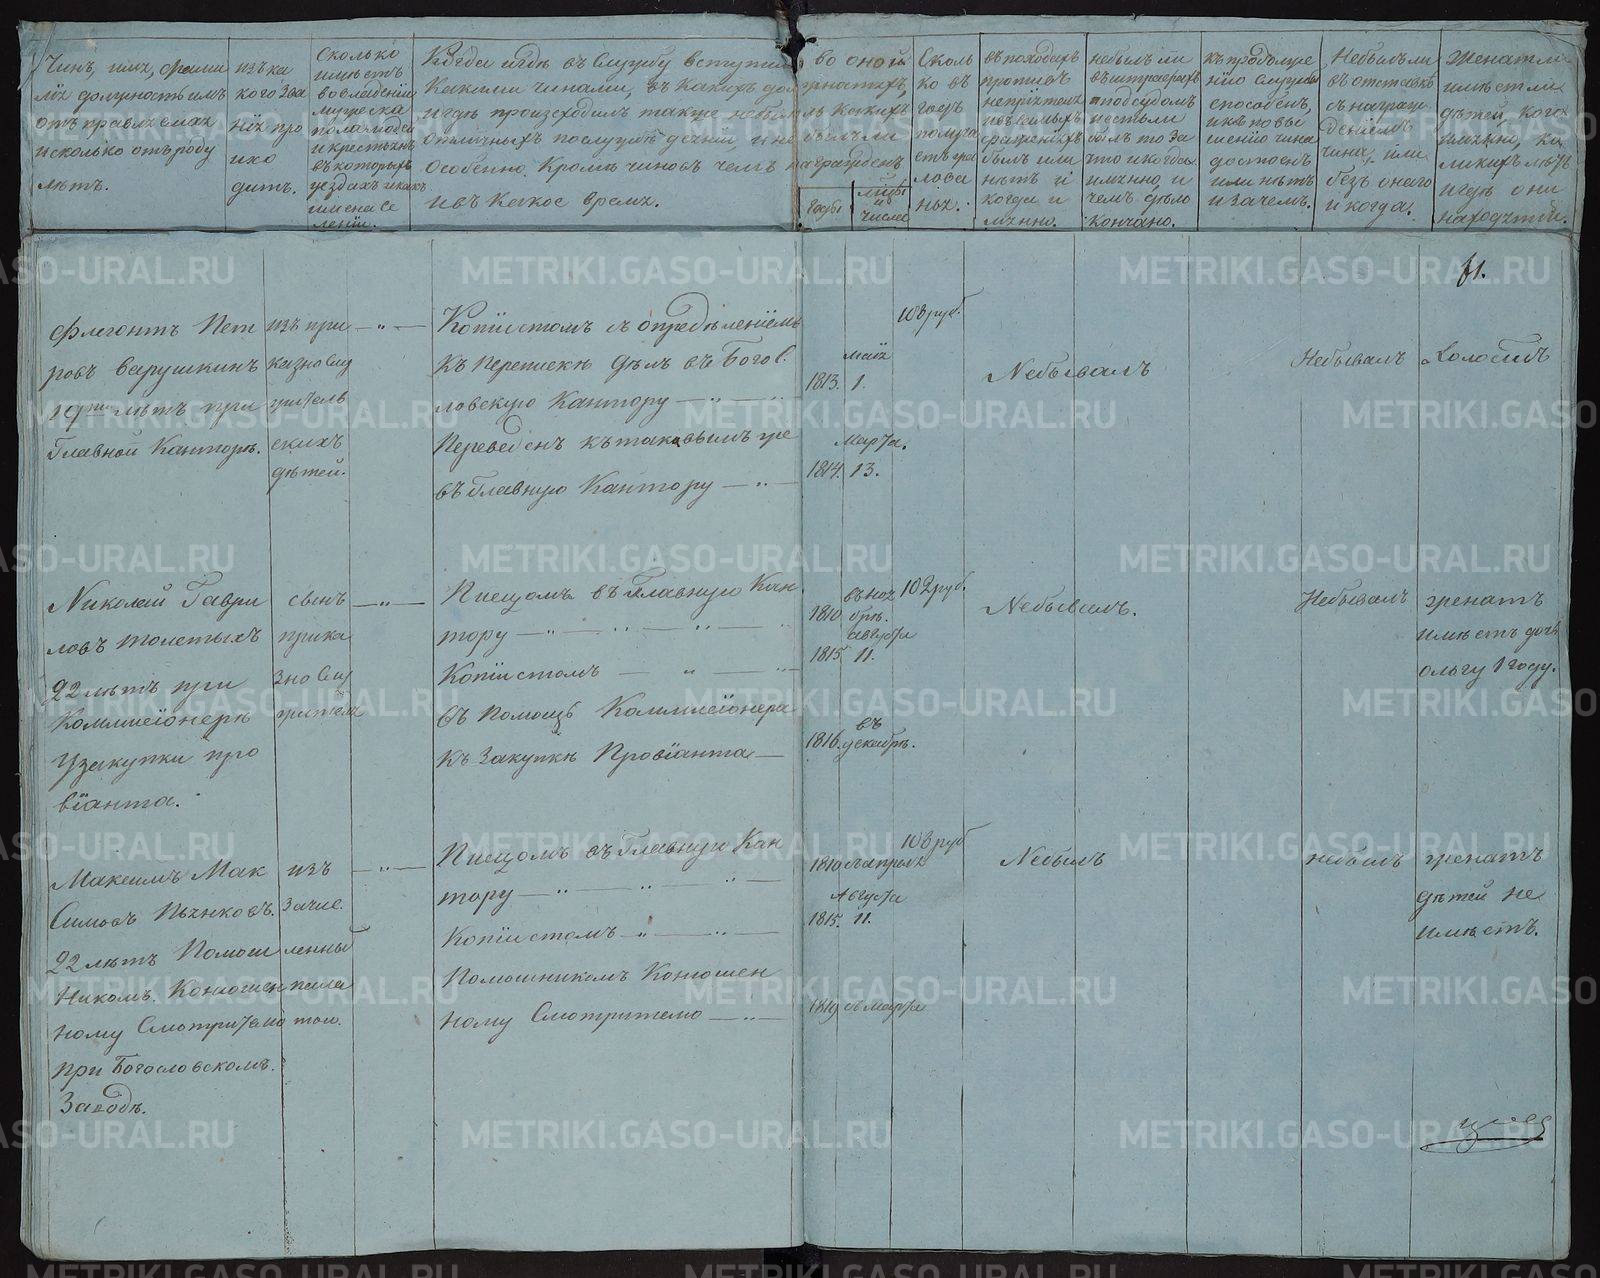 Чинъ, имя, фами
лія должность имъ
отъ правляемая
и сколько отъ роду
лѣтъ.
изъ ка
кого зва
нія про
ихо
дитъ.
Сколько
имѣетъ
во владеніи
мужеска
пола людей
и крестьянъ
въ которыхъ
уездахъ и какъ
имена се
леніи.
Когда и гдѣ въ Службу вступилъ во оной
Какими чинами, въ какихъ должностяхъ,
и гдѣ происходилъ также небылъ
отличныхъ по службѣ деяній, и не
особенно Кромѣ чиновъ чемъ награжденъ
и въ Какое время.
Годы
числа
Сколь
ко въ
годъ
получа
етъ жа
лова
нья.
въ походахъ
противъ
непріятеля
и въ самыхъ
сраженіяхъ
былъ или
нѣтъ и
когда и
мянно.
небылъ ли
въ штрафахъ
подсудомъ
и естьли
былъ то за
что и когда
имянно, и
чемъ дѣло
Кончано.
къ продолже
нію службы
способенъ
и къ повы
шенію чина
достоенъ
или нѣтъ
и зачемъ.
Небылъ ли
въ отставкѣ
съ награж
деніемъ
чина, или
безъ онаго
и когда.
Женатъ ли
имѣетъ ли
дѣтей, кого
имянно, ка
ликихъ лѣтъ
и гдѣ они
находятся.
61.
Флегонтъ Пет
ровъ Варушкинъ
19ти лѣтъ при
Главной Канторѣ.
изъ при
казнослу
жительс
скихъ
дѣтей.
Копіистомъ съ опредѣленіемъ
къ Перепискѣ дѣлъ въ Богос
ловскую Кантору
Переведенъ къ таковымъ же
въ Главную Кантору
мая
1813. 1.
Марта.
1814. 13.
108 руб.
Небывалъ
Небывалъ
Холостъ
Николай Гаври
ловъ Толстыхъ
22 лѣтъ при
Коммисіонерѣ
У закупки про
віанта.
сынъ
прика
знослу
жителя
Писцомъ въ Главную Кан
тору
Копіистомъ
въ Помощь Коммисіонера
къ Закупкѣ Провіанта
въ ноя
1810. брѣ.
августа
1815. 11.
въ
1816. декабрѣ.
102 руб.
Небывалъ.
Небывалъ
женатъ
имѣетъ дочь
ольгу 1 году.
Максимъ Мак
Симовъ Пьянковъ.
22 лѣтъ Помощ
Никомъ. Конюшен
ному Смотрителю
при Богословскомъ.
Заводѣ.
изъ
зачис.
ленныхъ
Писцомъ въ Главную Кан
тору
Копіистомъ
Помошникомъ Конюшен
ному Смотрителю
1810 съ апреля
Августа
1815. 11.
1819 съ марта
108 руб
Небылъ
небылъ
женатъ
дѣтей не
имѣетъ.
METRIKI.GASO-URAL.RU